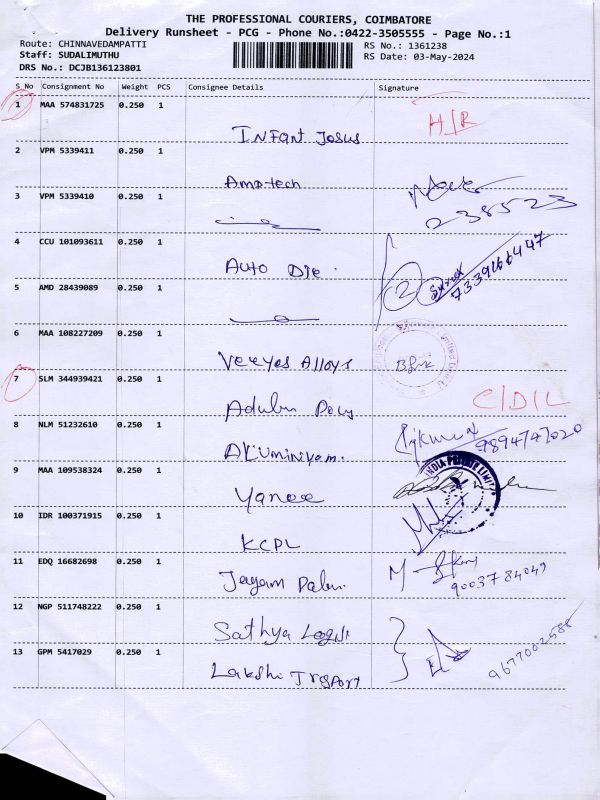 THE PROFESSIONAL COURIERS, COIMBATORE
Delivery Runsheet - PCG - Phone No.:0422-3505555 - Page No.:1
Route: CHINNAVEDAMPATTI RS No.: 1361238
Staff: SUDALIMUTHU RS Date: 03-May-2024
DRS No.: DCJB136123801
S_No Consignment No Weight PCS Consignee Details Signature
1 MAA 574831725 0.250 1
Infant Josus H/R
2 VPM 5339411 0.250 1
Amo-tech
3 VPM 5339410 0.250 1
238523
4 CCU 101093611 0.250 1
Auto Die. 2 7339166447
5 AMD 28439089 0.250 1
6 MAA 108227209 0.250 1
Veeyes Alloys
7 SLM 344939421 0.250 1
C/D/L
8 NLM 51232610 0.250 1
9894747020
9 MAA 109538324 0.250 1
INDIA PRIVATE LIMI
10 IDR 100371915 0.250 1
KCPL
11 EDQ 16682698 0.250 1
Jayam
9003784049
12 NGP 511748222 0.250 1
Sathya
9677002588
13 GPM 5417029 0.250 1
Lakshi